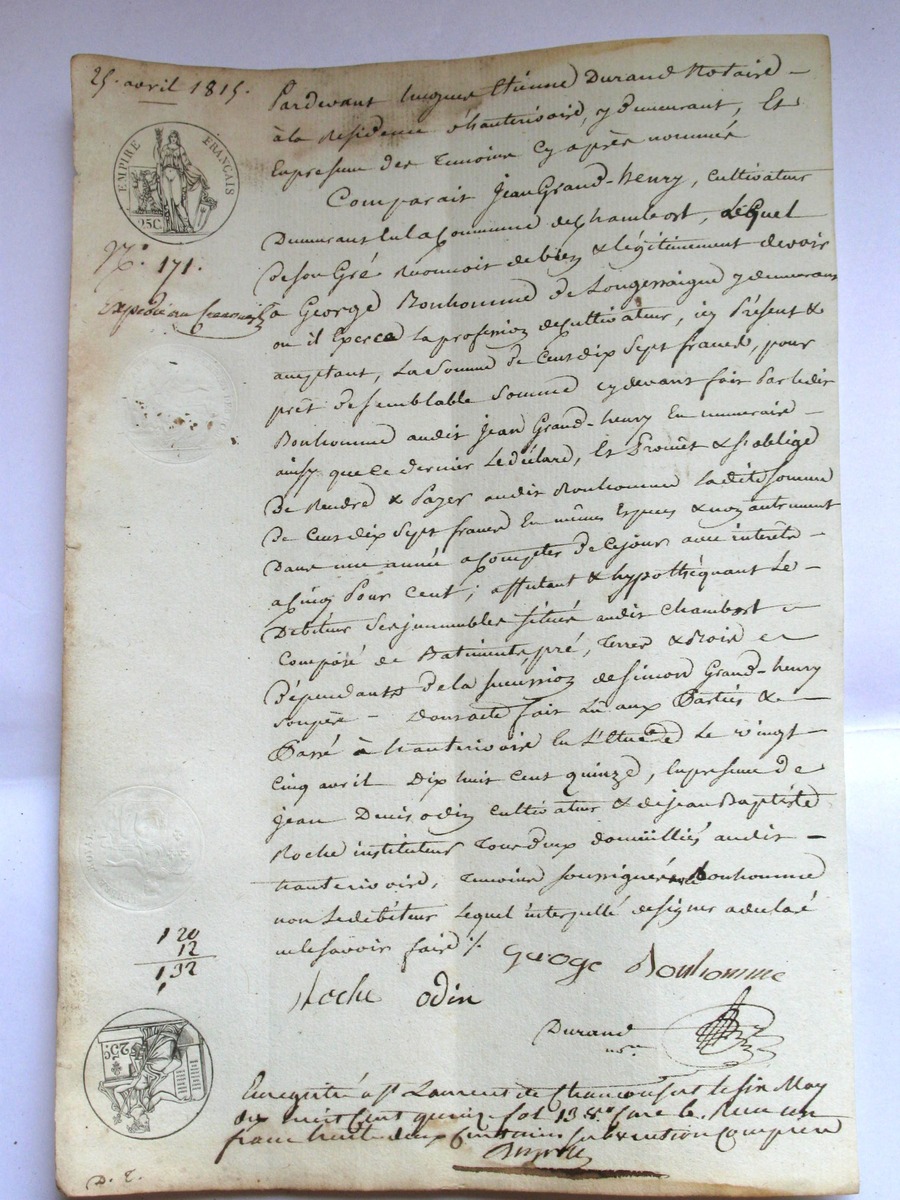 25. avril 1815.
EMPIRE FRANÇAIS
25C
N.° 171.
Expedié au
Pardevant Etienne Durand Notaire
à la Residence d'hauterivoire, y demeurant, Et
En presence des temoins cy après nommés
Comparait Jean Grand-henry, cultivateur
Demeurant en la Commune de Chambost, Lequel
de son Gré Reconnoit de bien & légitimement devoir
a George Bonhomme de Longessaigne y demeurant
ou il Exerce la profession de cultivateur, icy Présent &
acceptant, La Somme de Cent dix Sept francs, pour
prêt de semblable Somme cy devant fait Par ledit
Bonhomme audit jean Grand-henry En numeraire
ainsy que ce dernier Le déclare, Et Promet & s'oblige
de Rendre & Payer audit Bonhomme Ladite Somme
de Cent dix Sept francs En mêmes Especes & non autrement
Dans une année a Compter de Ce jour avec interets
a Cinq Pour Cent ; affectant & hypothéquant Le
Débiteur Ses immeubles Situés audit Chambost
Composé de Batiments, pré, terres & Bois
dépendants de la succession de Simon Grand-henry
son père - dont acte fait Lu aux Parties &
Passé à hauterivoire En L'Etude Le vingt
Cinq avril Dix huit Cent quinze, En presence de
jean Denis odin cultivateur & de jean Baptiste
Roche instituteur tous deux domiciliés audit
hauterivoire, temoins soussignés Bonhomme
non Le debiteur Lequel interpellé de signer a declaré
ne le savoir faire ./.
120
12
132
George Bonhomme
Roche odin
Durand
nore
25C.
Enregistré a St Laurent de Chamousset le six May
dix huit Cent quinze fol 13 Case Reçu un
franc trente deux Centimes subvention Comprise
D. T.